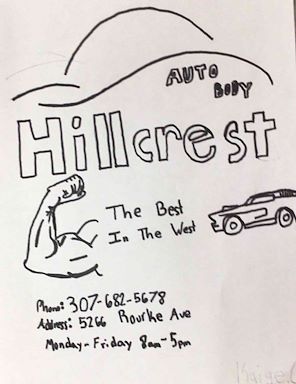 AUTO
BODY
Hillcrest
The Best
In The West
Phone: 307-682-5678
Address: 5266 Rourke Ave
Monday-Friday 8am-5pm